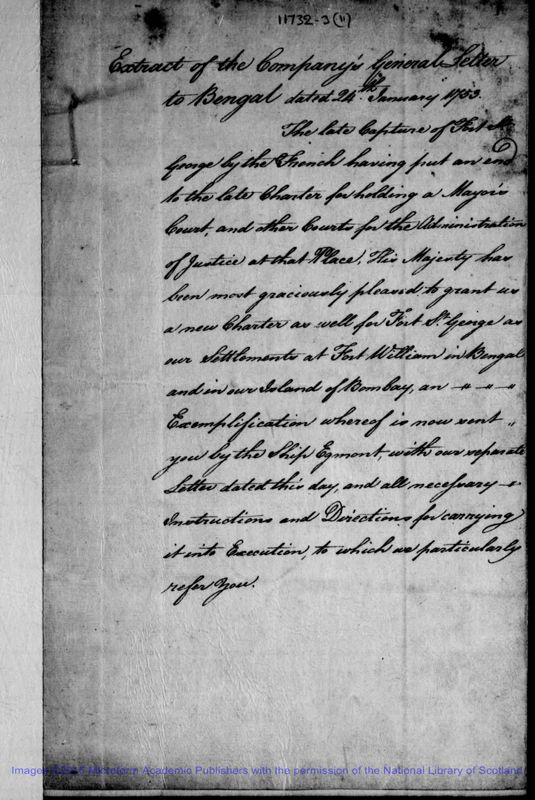 11732-3(11)
Extract of the Company's General Letter
to Bengal dated 24th January 1753.
The late Capture of Fort St.
George by the French having put an end
to the late Charter for holding a Mayor's
Court, and other Courts for the Administration
of Justice at that Place, His Majesty has
been most graciously pleased to grant us
a new Charter as well for Fort St. George as
our Settlements at Fort William in Bengal
and in our Island of Bombay, an
Exemplification whereof is now sent "
you by the Ship Egmont, with our separate
Letter dated this day, and all necessary
Instructions and Directions for carrying
it into Execution, to which we particularly
refer You.
Microform Academic Publishers with the permission of the National Library of Scotland